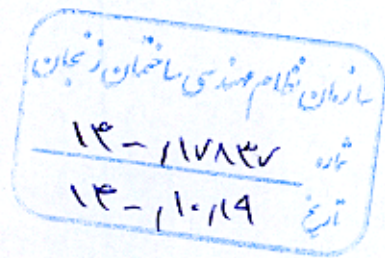 سازمان نظام مهندسی ساختمان زنجان
شماره ۱۷۸۳۷/-۱۴
تاریخ ۱۴-/۱۰/۱۹